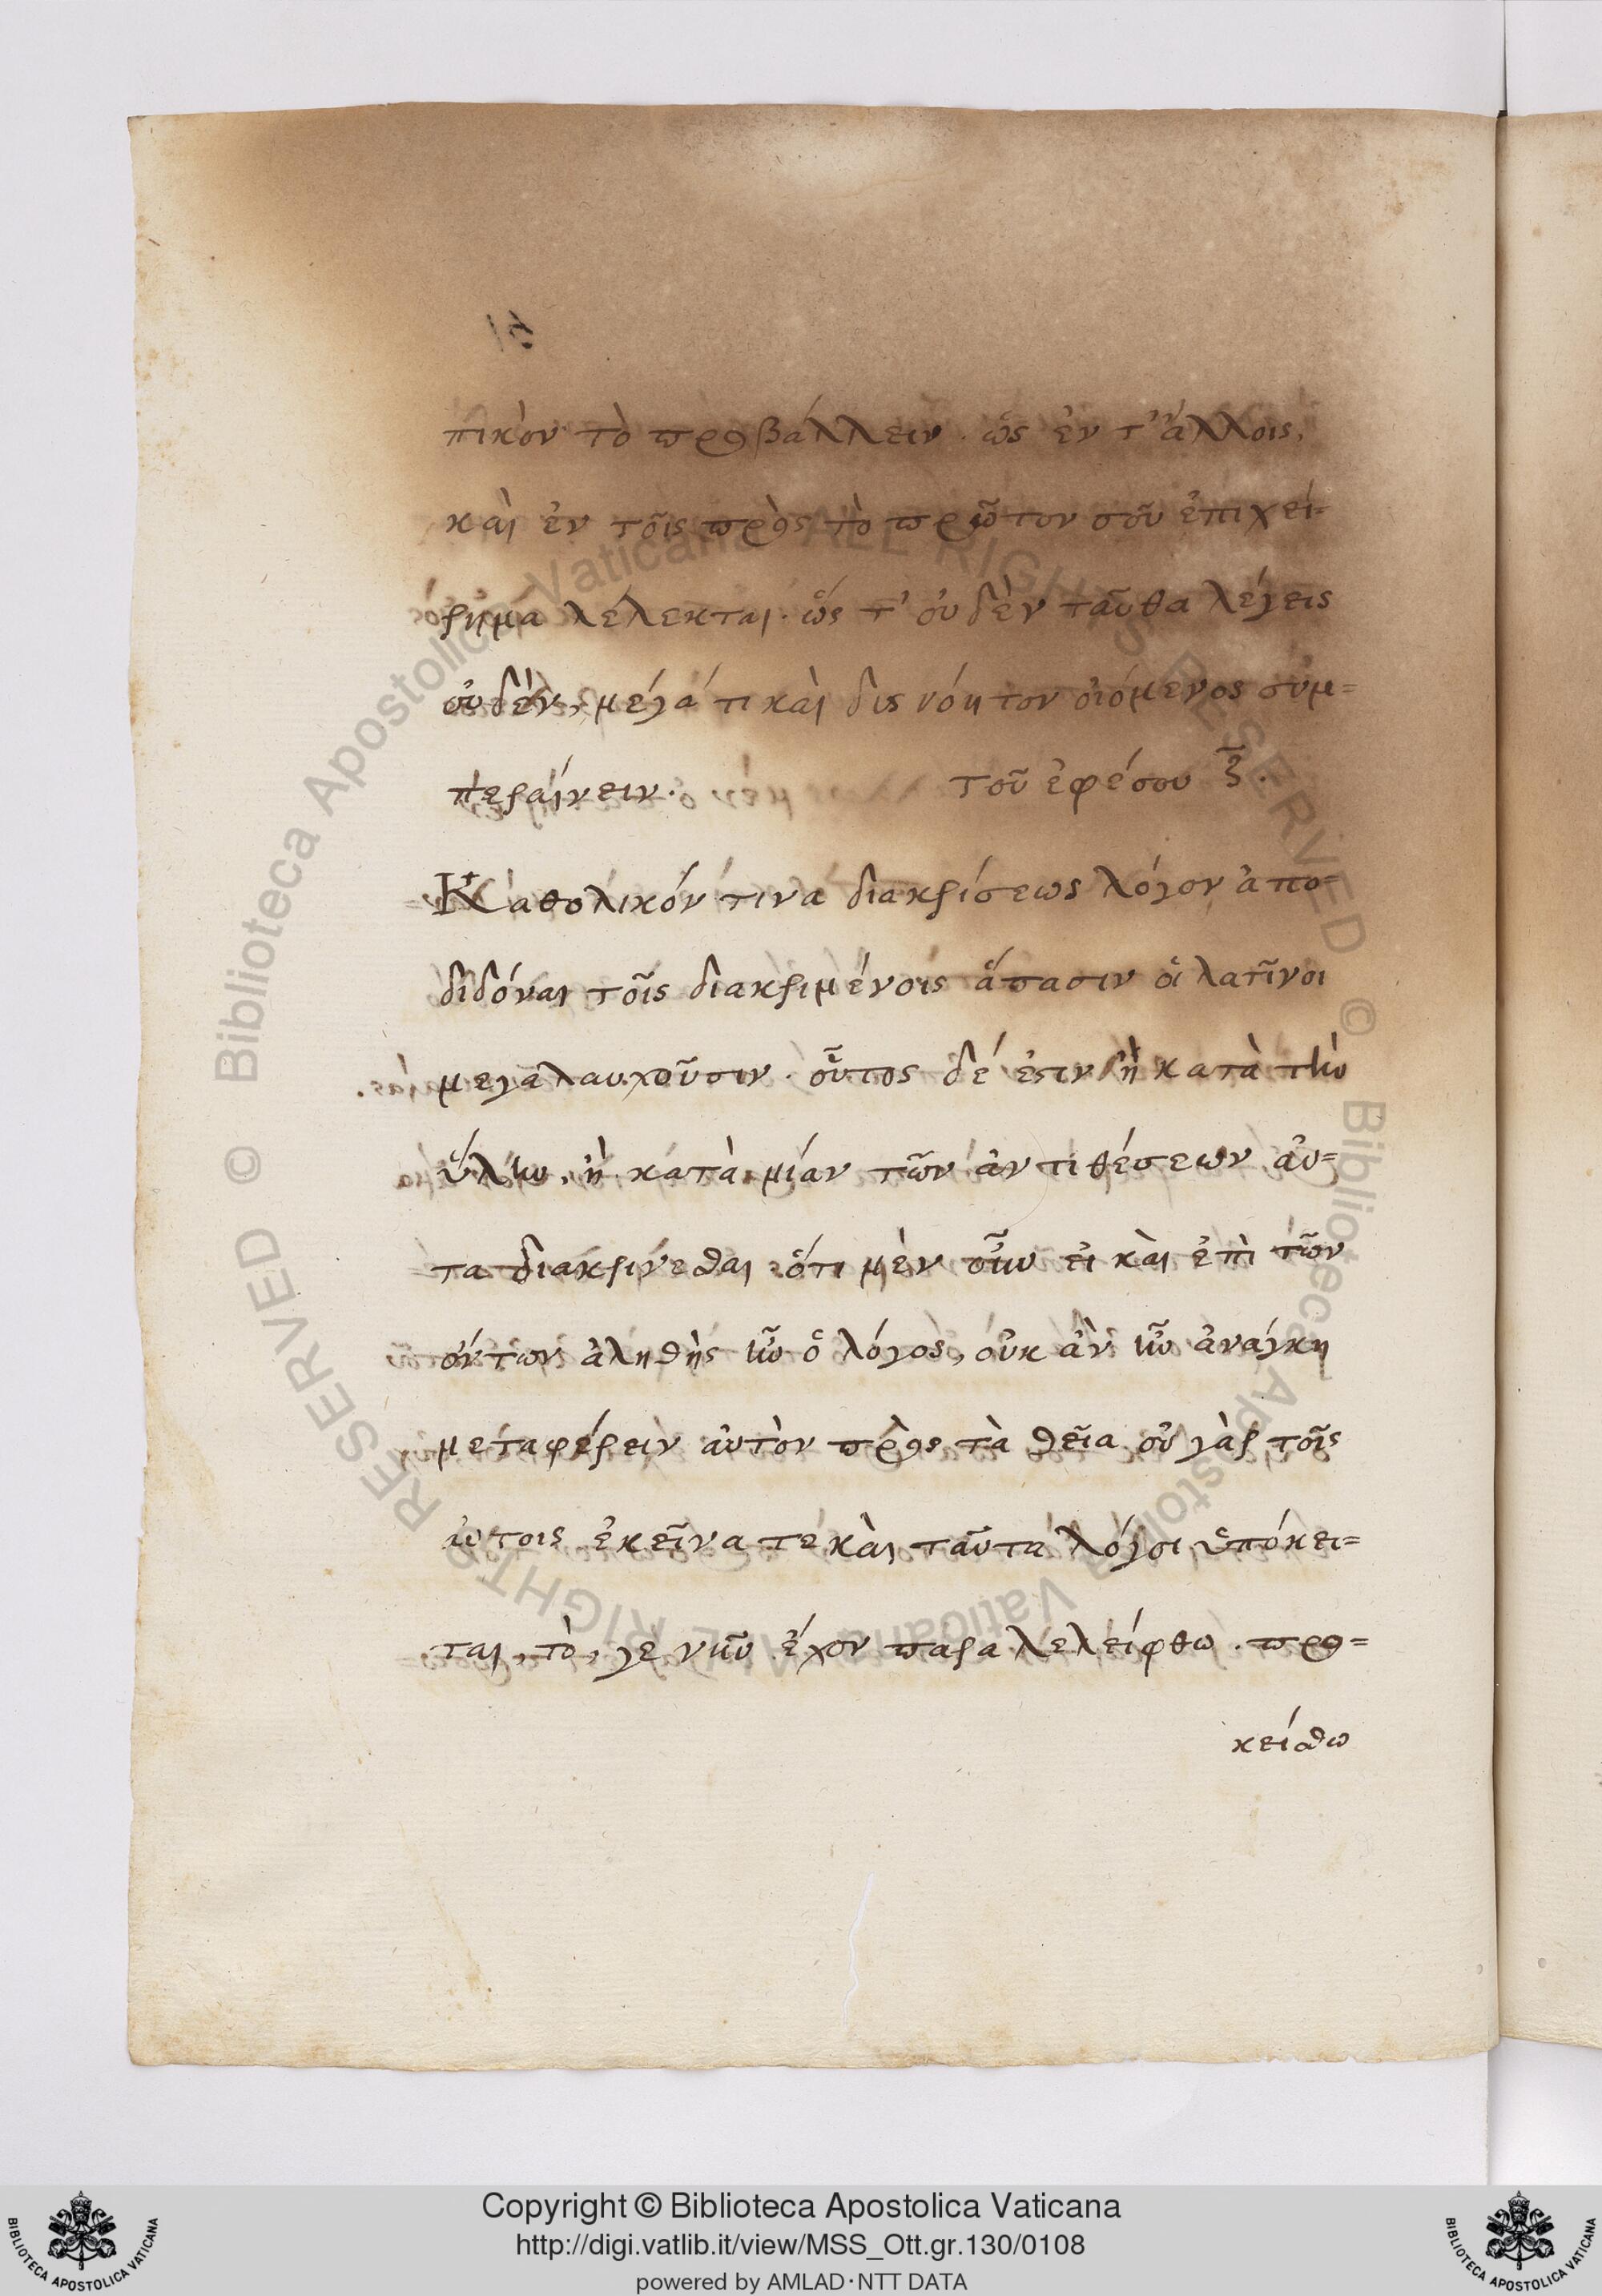 πικὸν τὸ προβάλλειν. ὡς ἐν τ' ἄλλοις,
καὶ ἐν τοῖς πρὸς τὸ πρῶτον σοῦ ἐπιχεί=
ρημα λέλεκται. ὥς τ' οὐδὲν ταῦθα λέγεις
οὐδέν, μέγά τι καὶ δισνόητον οἰόμενος συμ=
περαίνειν. τοῦ ἐφέσου ξ̃.
Καθολικόν τινα διακρίσεως λόγον ἀπο=
διδόναι τοῖς διακριμένοις ἅπασιν οἱ λατῖνοι
μεγαλαυχοῦσιν. οὗτος δέ ἐστιν ἢ κατὰ τὴν
ὕλην, ἢ κατὰ μίαν τῶν ἀντιθέσεων αὐ=
τα διακρίνεσθαι ὅτι μὲν οὖν εἰ καὶ ἐπὶ τῶν
ὄντων ἀληθὴς ἦν ὁ λόγος, οὐκ ἂν ἦν ἀνάγκη
μεταφέρειν αὐτὸν πρὸς τὰ θεῖα οὐ γὰρ τοῖς
αὐτοις ἐκεῖνα τὲ καὶ ταῦτα λόγοι ὑπόκει=
ται, τὸ, γε νῦν ἔχον παραλελείφθω. προ=
κείσθω
Copyright © Biblioteca Apostolica Vaticana
http://digi.vatlib.it/view/MSS_Ott.gr.130/0108
powered by AMLAD·NTT DATA
BIBLIOTECA APOSTOLICA VATICANA
BIBLIOTECA APOSTOLICA VATICANA
© Biblioteca Apostolica Vaticana ALL RIGHTS RESERVED © Biblioteca Apostolica Vaticana ALL RIGHTS RESERVED